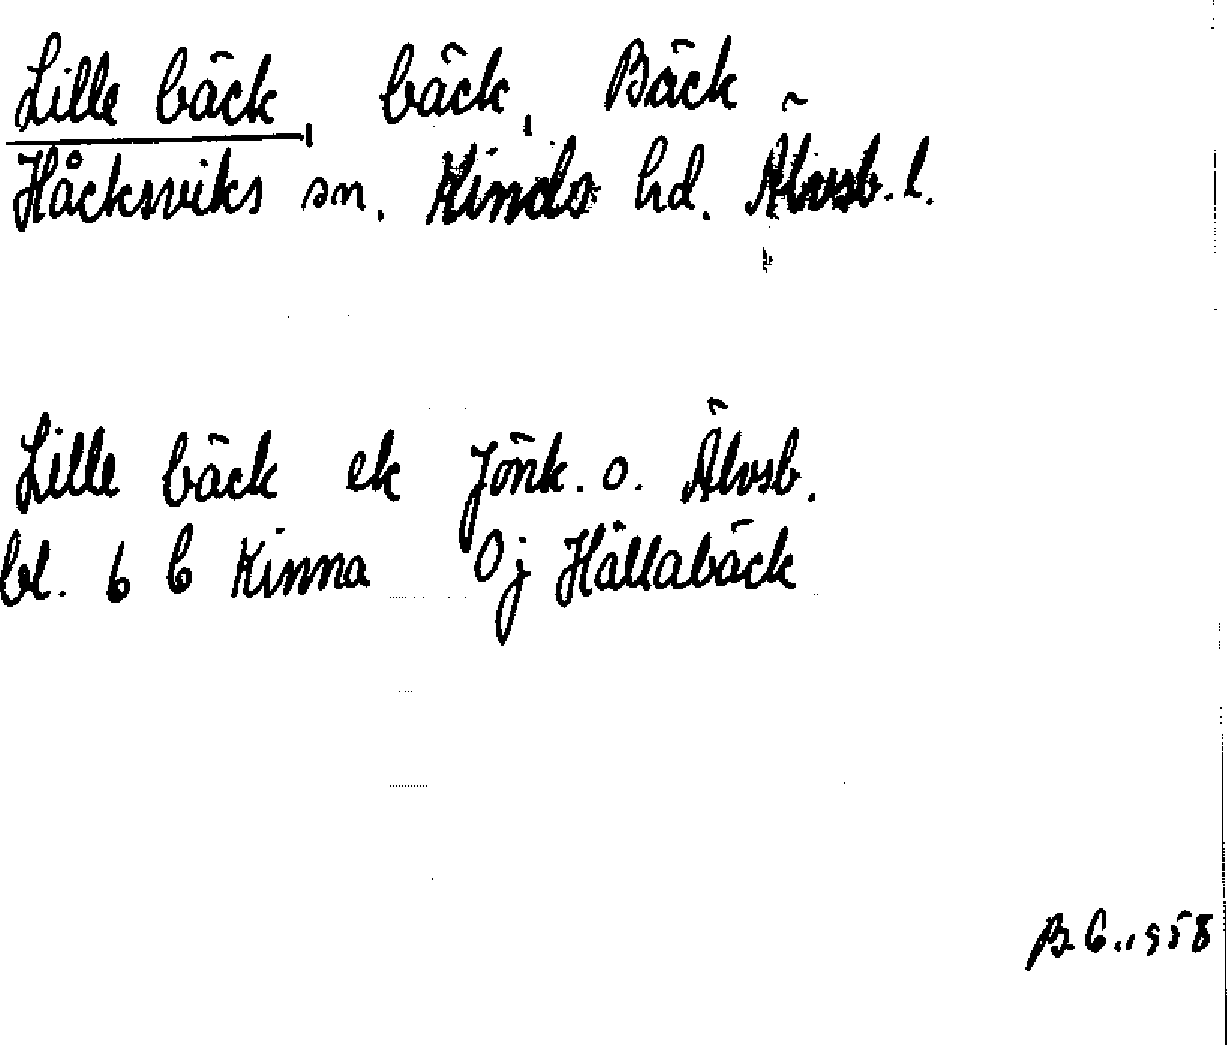 Lille bäck, bäck, Bäck
Håcksviks sn. Kinds hd. Älvsb. l.
Lille bäck ek Jönk. o. Älvsb.
bl. 6 b Kinna Oj Hällabäck
1958